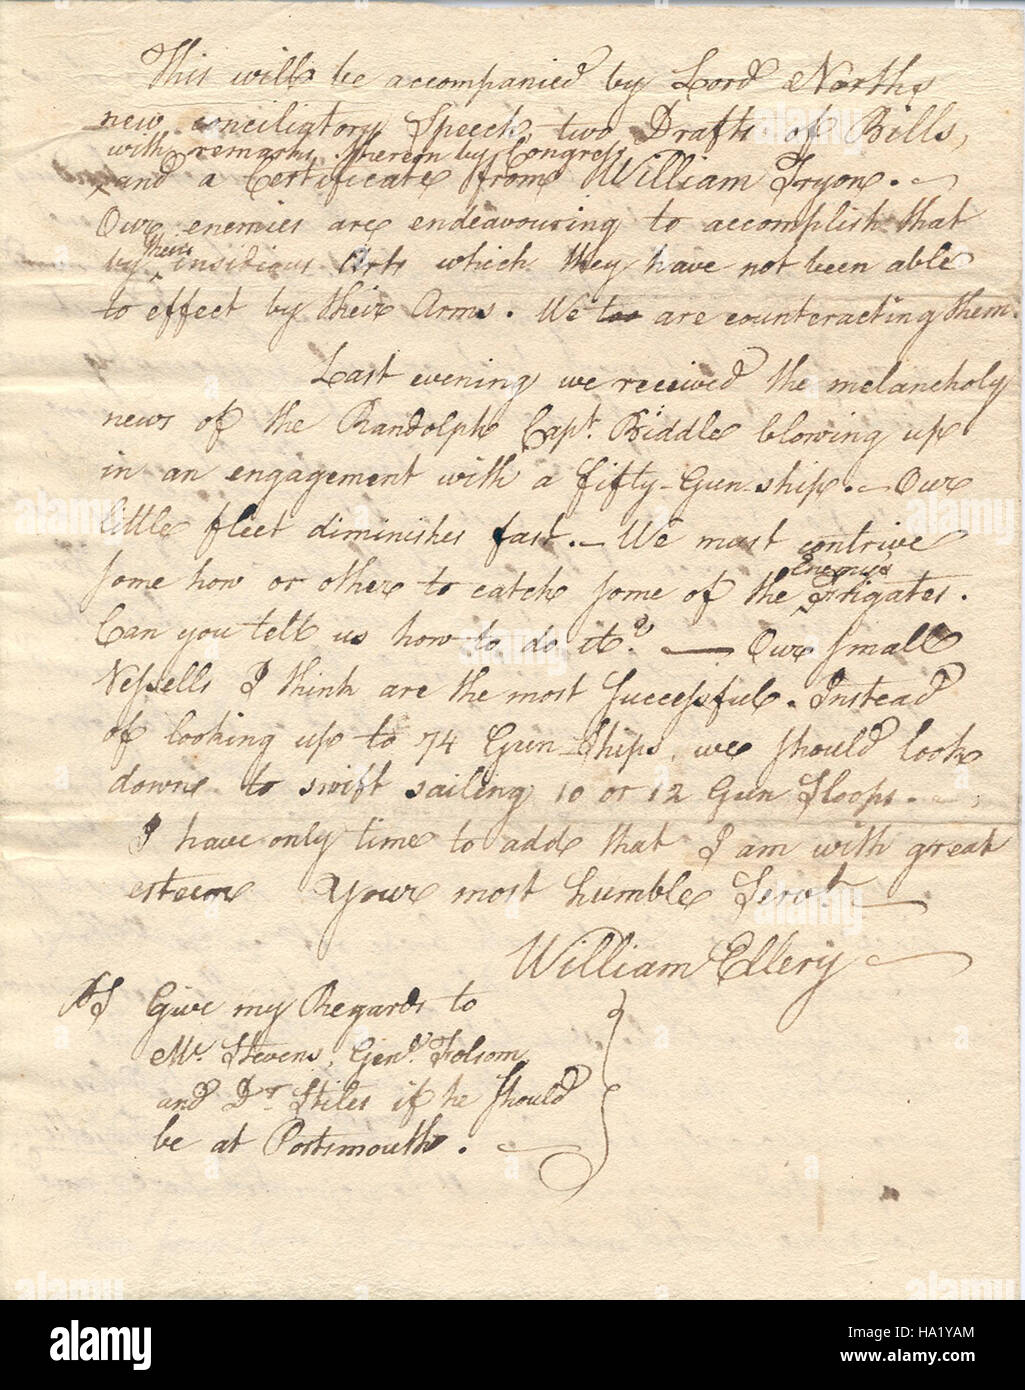 This will be accompanied by Lord Norths
new conciliatory Speech, two Drafts of Bills,
with remarks thereon by Congress
^and a Certificate from William Tryon. —
Our enemies are endeavouring to accomplish that
by ^their insidious Arts which they have not been able
to effect by their Arms. We too are counteracting them.
Last evening we received the melancholy
news of the Randolph Capt. Biddle blowing up
in an engagement with a fifty-Gun-ship. — Our
little fleet diminishes fast. — We must contrive
some how or other to catch some of the ^Enemies Frigates.
Can you tell us how to do it? — Our small
Vessells I think are the most successful. Instead
of looking up to 74 Gun Ships, we should look
down to swift sailing 10 or 12 Gun Sloops. —
I have only time to add that I am with great
esteem Your most humble Servt. —
William Ellery
PS Give my Regards to
Mr. Stevens, Genl. Folsom,
and Dr. Stiles if he should
be at Portsmouth. —
alamy
Image ID: HA1YAM
www.alamy.com